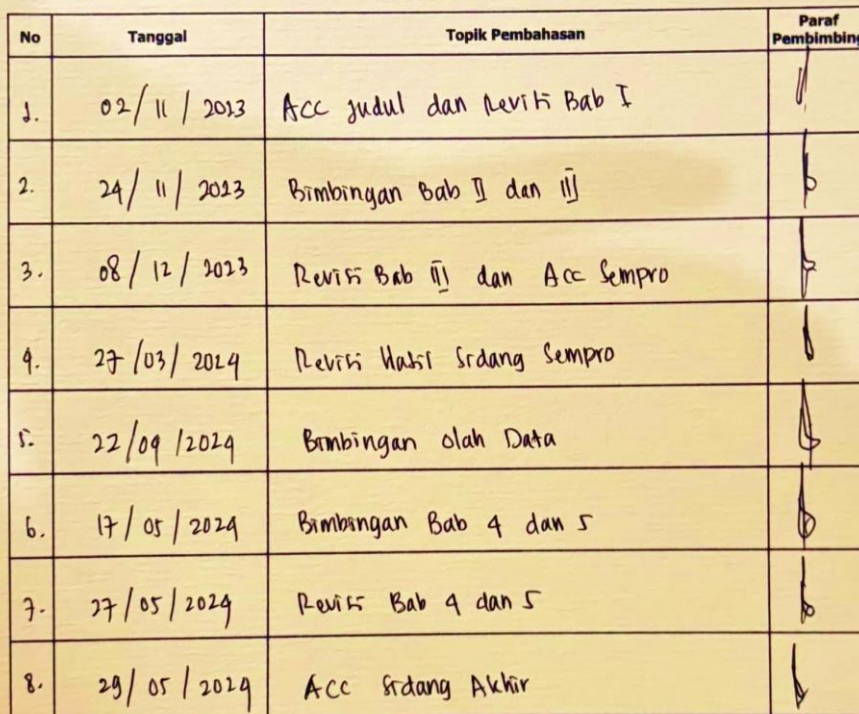 No Tanggal Topik Pembahasan Paraf
Pembimbing
1. 02/11/2023 Acc Judul dan Revisi Bab I
2. 24/11/2023 Bimbingan Bab II dan III
3. 08/12/2023 Revisi Bab III dan Acc Sempro
4. 27/03/2024 Revisi Hasil Sidang Sempro
5. 22/04/2024 Bimbingan olah Data
6. 17/05/2024 Bimbingan Bab 4 dan 5
7. 27/05/2024 Revisi Bab 4 dan 5
8. 29/05/2024 Acc Sidang Akhir